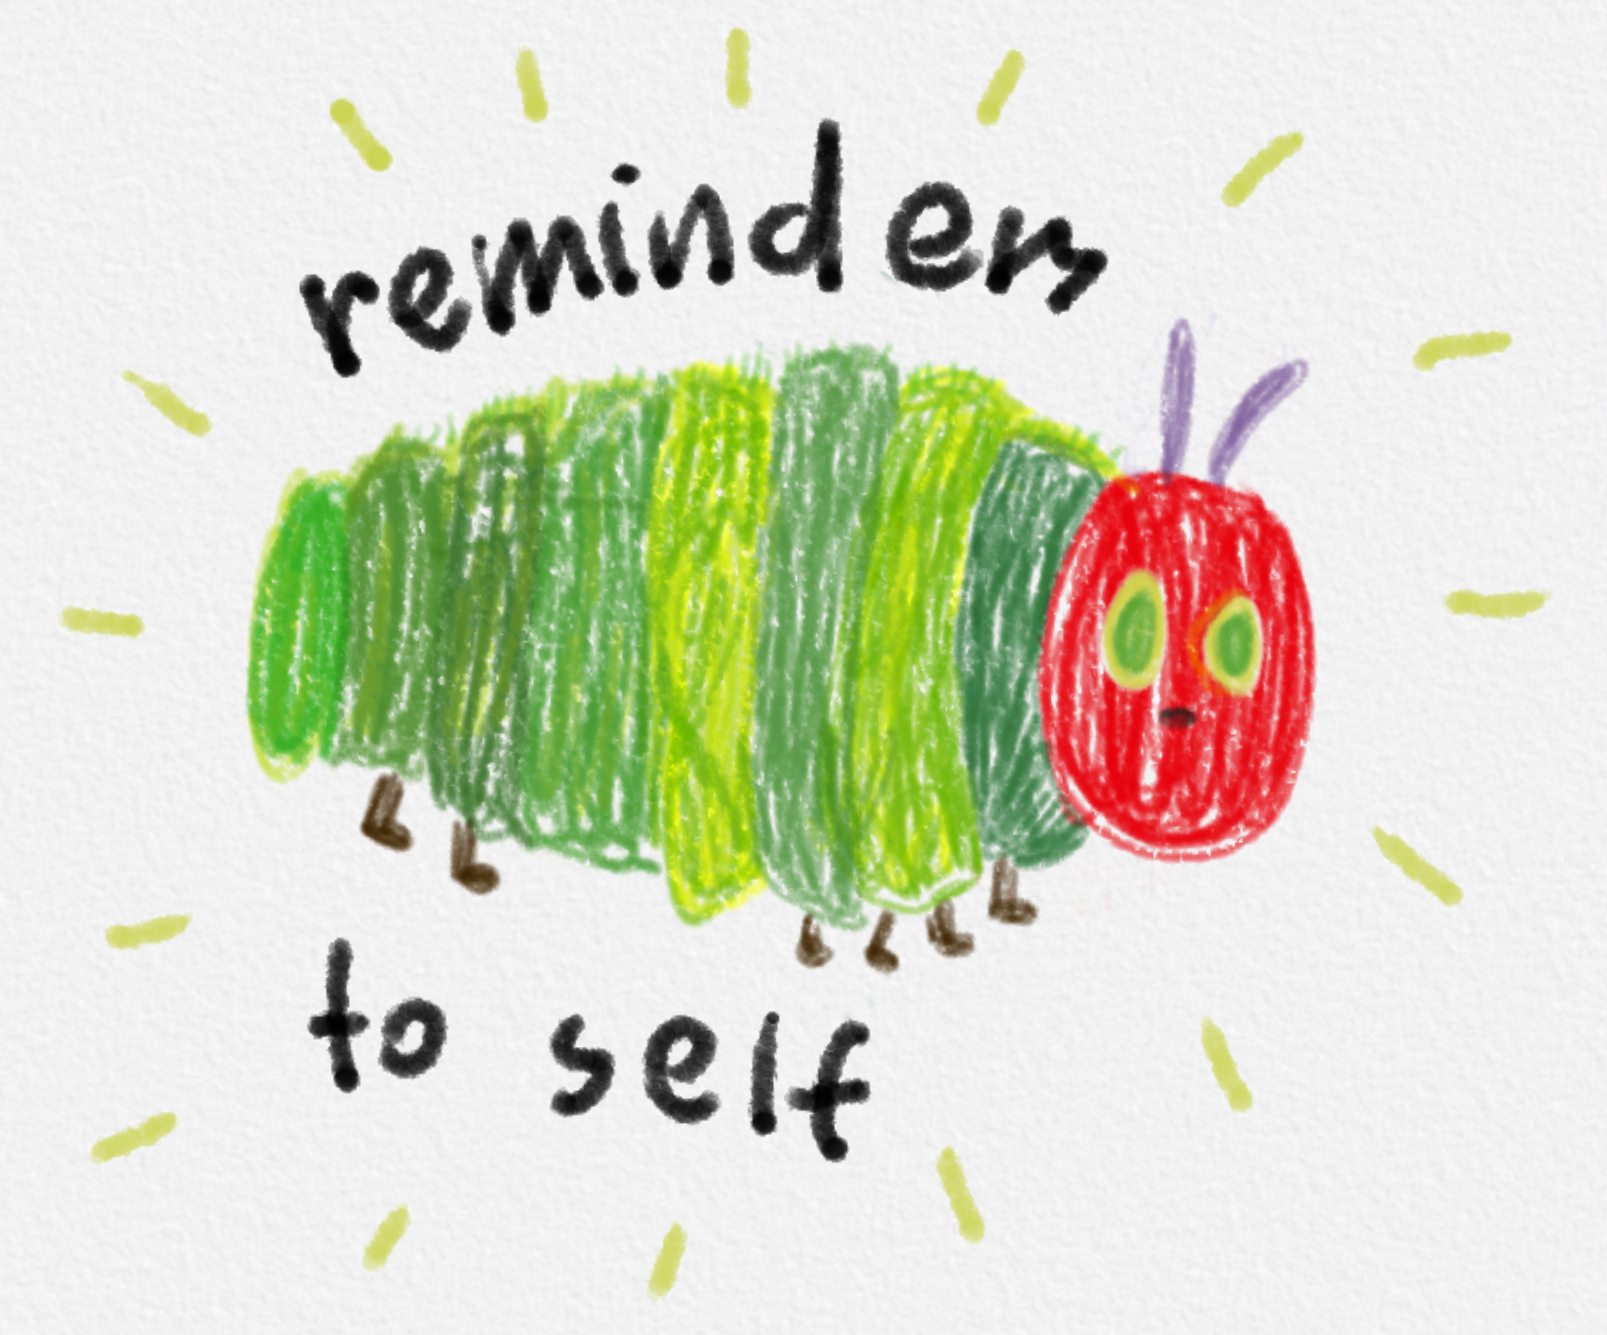 reminders
to self